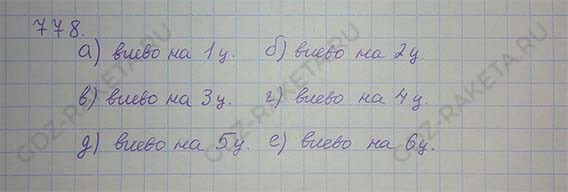 778.
а) влево на 1ц. б) влево на 2ц.
в) влево на 3ц. г) влево на 4ц.
д) влево на 5ц. е) влево на 6ц.
GDZ-RAKETA.RU
GDZ-RAKETA.RU
GDZ-RAKETA.RU